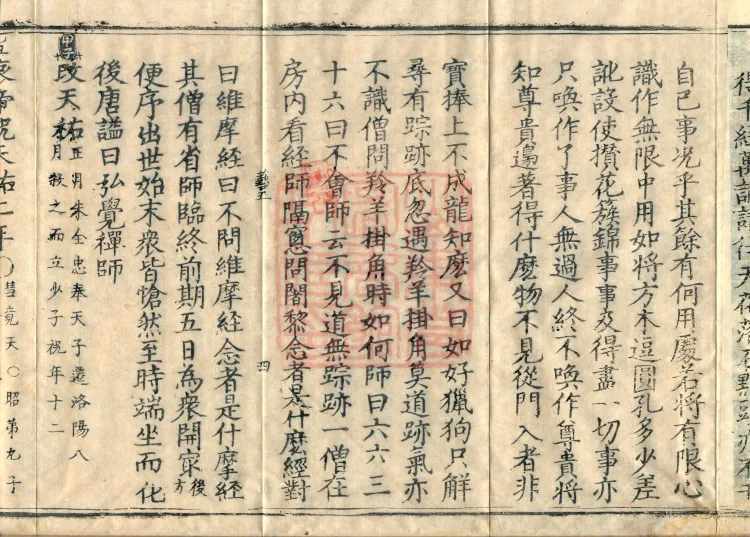 自己事况乎其餘有何用處若將有限心
識作無限中用如將方木逗圓孔多少差
訛設使攢花簇錦事事及得盡一切事亦
只喚作了事人無過人終不喚作尊貴將
知尊貴邊著得什麽物不見從門入者非
寳捧上不成龍知麽又曰如好獵狗只觧
尋有踪跡底忽遇羚羊掛角莫道跡氣亦
不識僧問羚羊掛角時如何師曰六六三
十六曰不會師云不見道無踪跡一僧在
房内看經師隔窓問闍黎念者是什麽經對
四
曰維摩經曰不問維摩經念者是什摩經
其僧有省師臨終前期五日為衆開㝡後方
便序出世始末衆皆愴然至時端坐而化
後唐謚曰弘覺禪師
甲子 改天祐 正月朱全忠奉天子遷洛陽八月弑之而立少子祝年十二
帝祝天祐二年〇彗竟天〇昭第九子